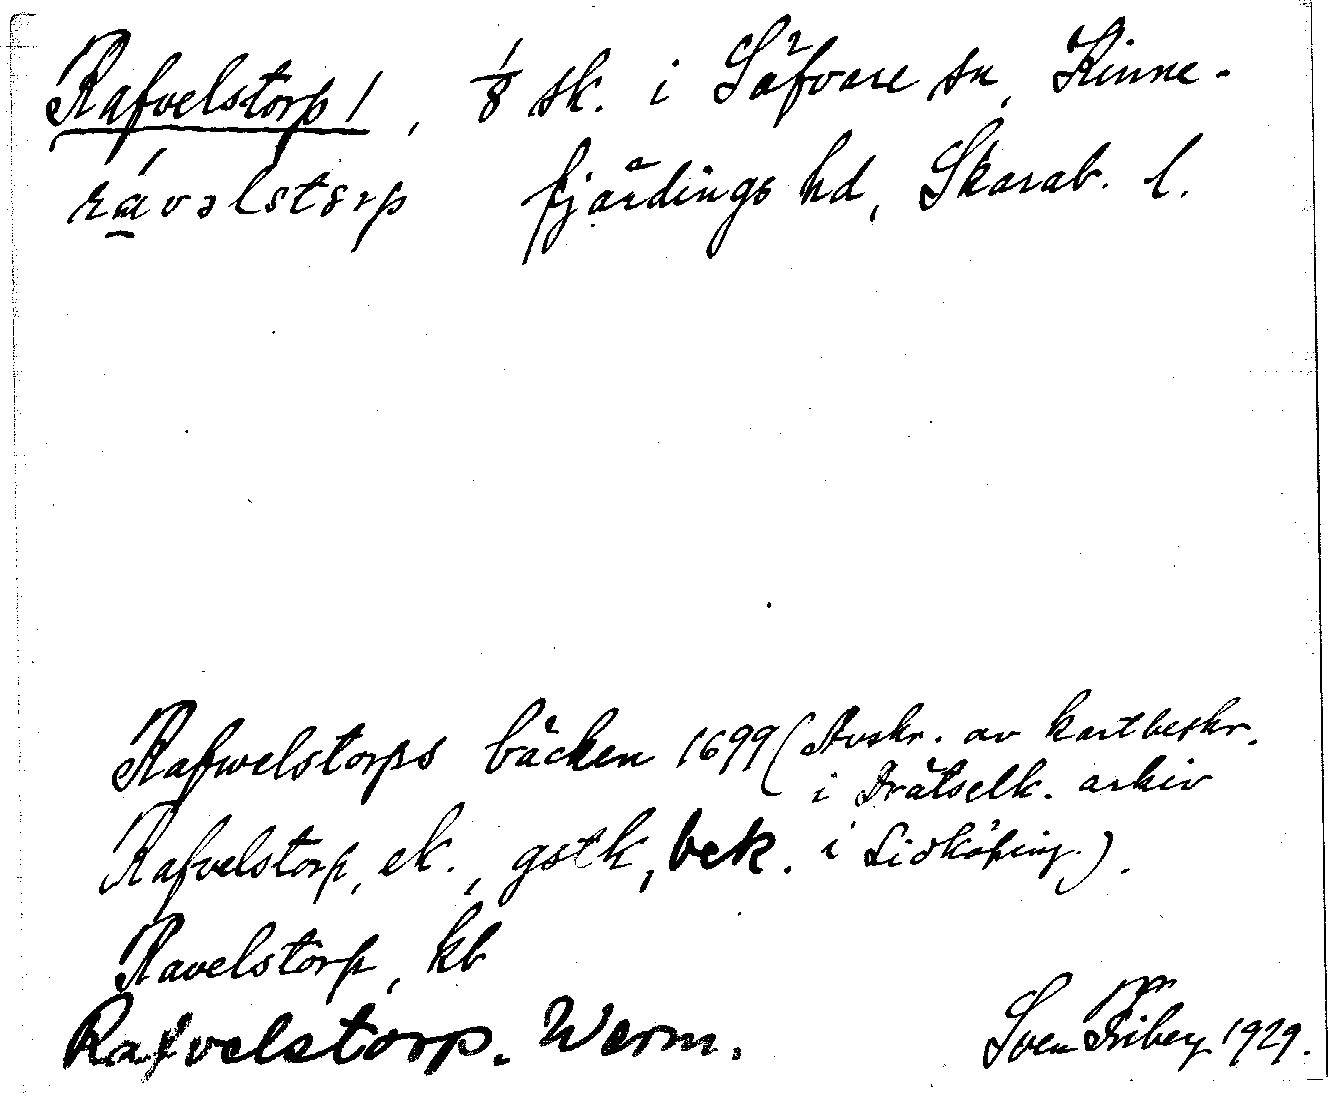 Rafvelstorp 1, 1/8 sk. i Säfvare sn, Kinne-
rávəlstɔrp fjärdings hd, Skarab. l.
Rafwelstorps bäcken 1699 (Avskr. av kartbeskr.
i Drätselk. arkiv
Rafvelstorp, ek., gstk, bek. i Lidköping.).
Ravelstorp, kb
Rafvelstorp. Werm.
Sven Friberg 1929.